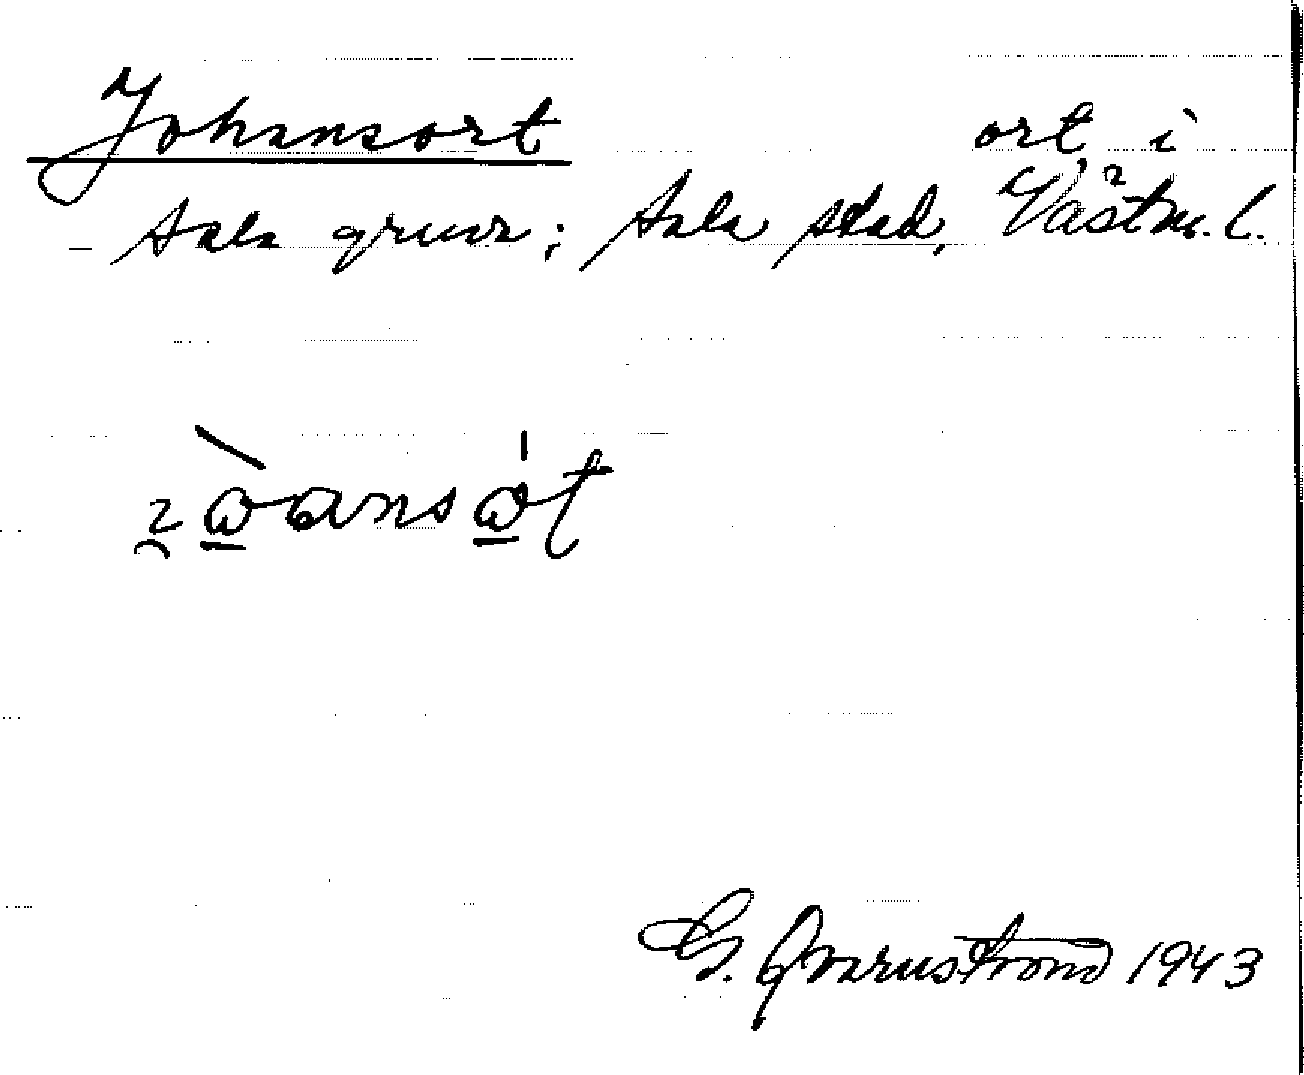 Johansort ort i
Sala gruva; Sala stad, Västm. l.
G. Qvarnström 1943